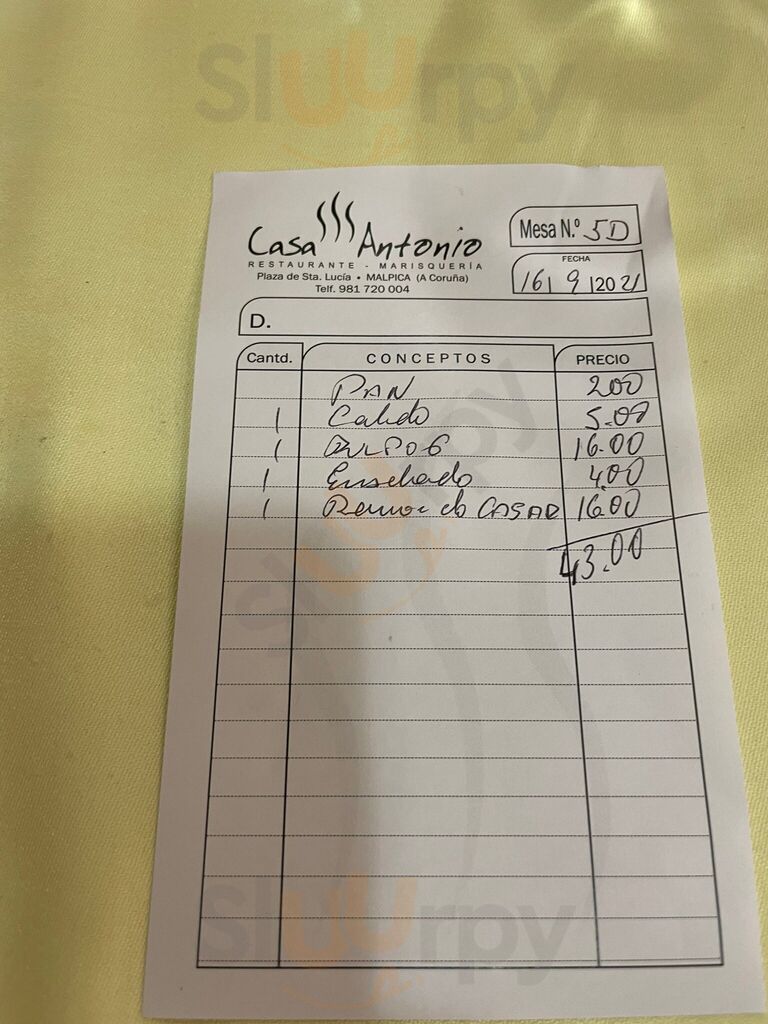 Sluurpy
Casa Antonio
RESTAURANTE - MARISQUERÍA
Plaza de Sta. Lucía - MALPICA (A Coruña)
Telf. 981 720 004
Mesa N.º 5D
FECHA
16 9 2021
D.
Cantd. CONCEPTOS PRECIO
PAN 2.00
1 Caldo 5.00
1 PULPO 16.00
1 Ensalada 4.00
1 CASAR 16.00
43.00
Sluurpy
Sluurpy